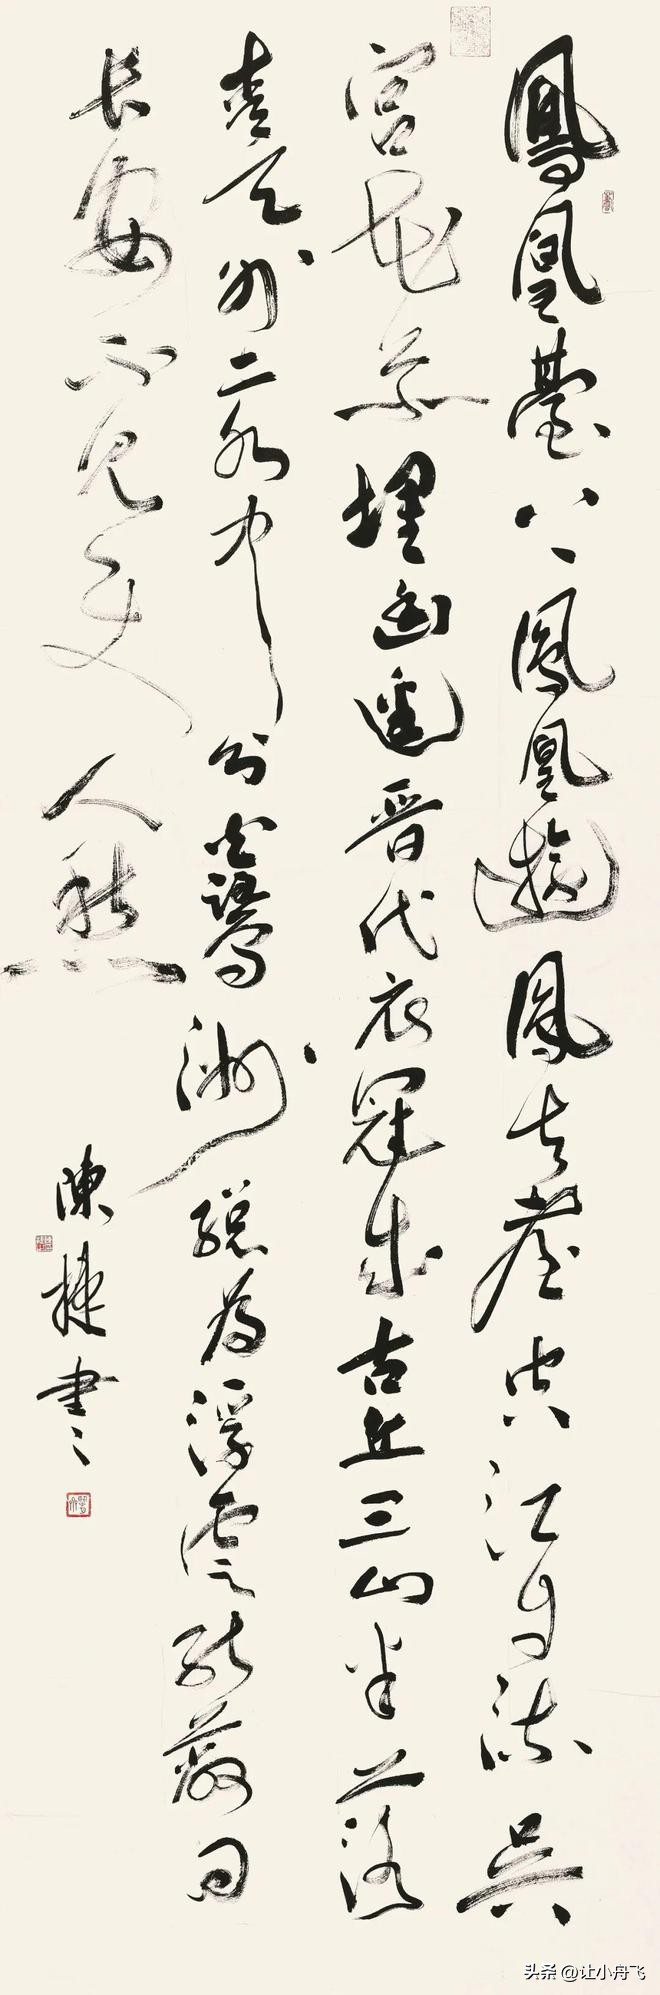 鳳凰臺上鳳凰遊鳳去臺空江自流吳
宮花草埋幽逕晉代衣冠成古丘三山半落
青天外二水中分白鷺洲總為浮雲能蔽日
長安不見使人愁
陳捷書
头条 @让小舟飞